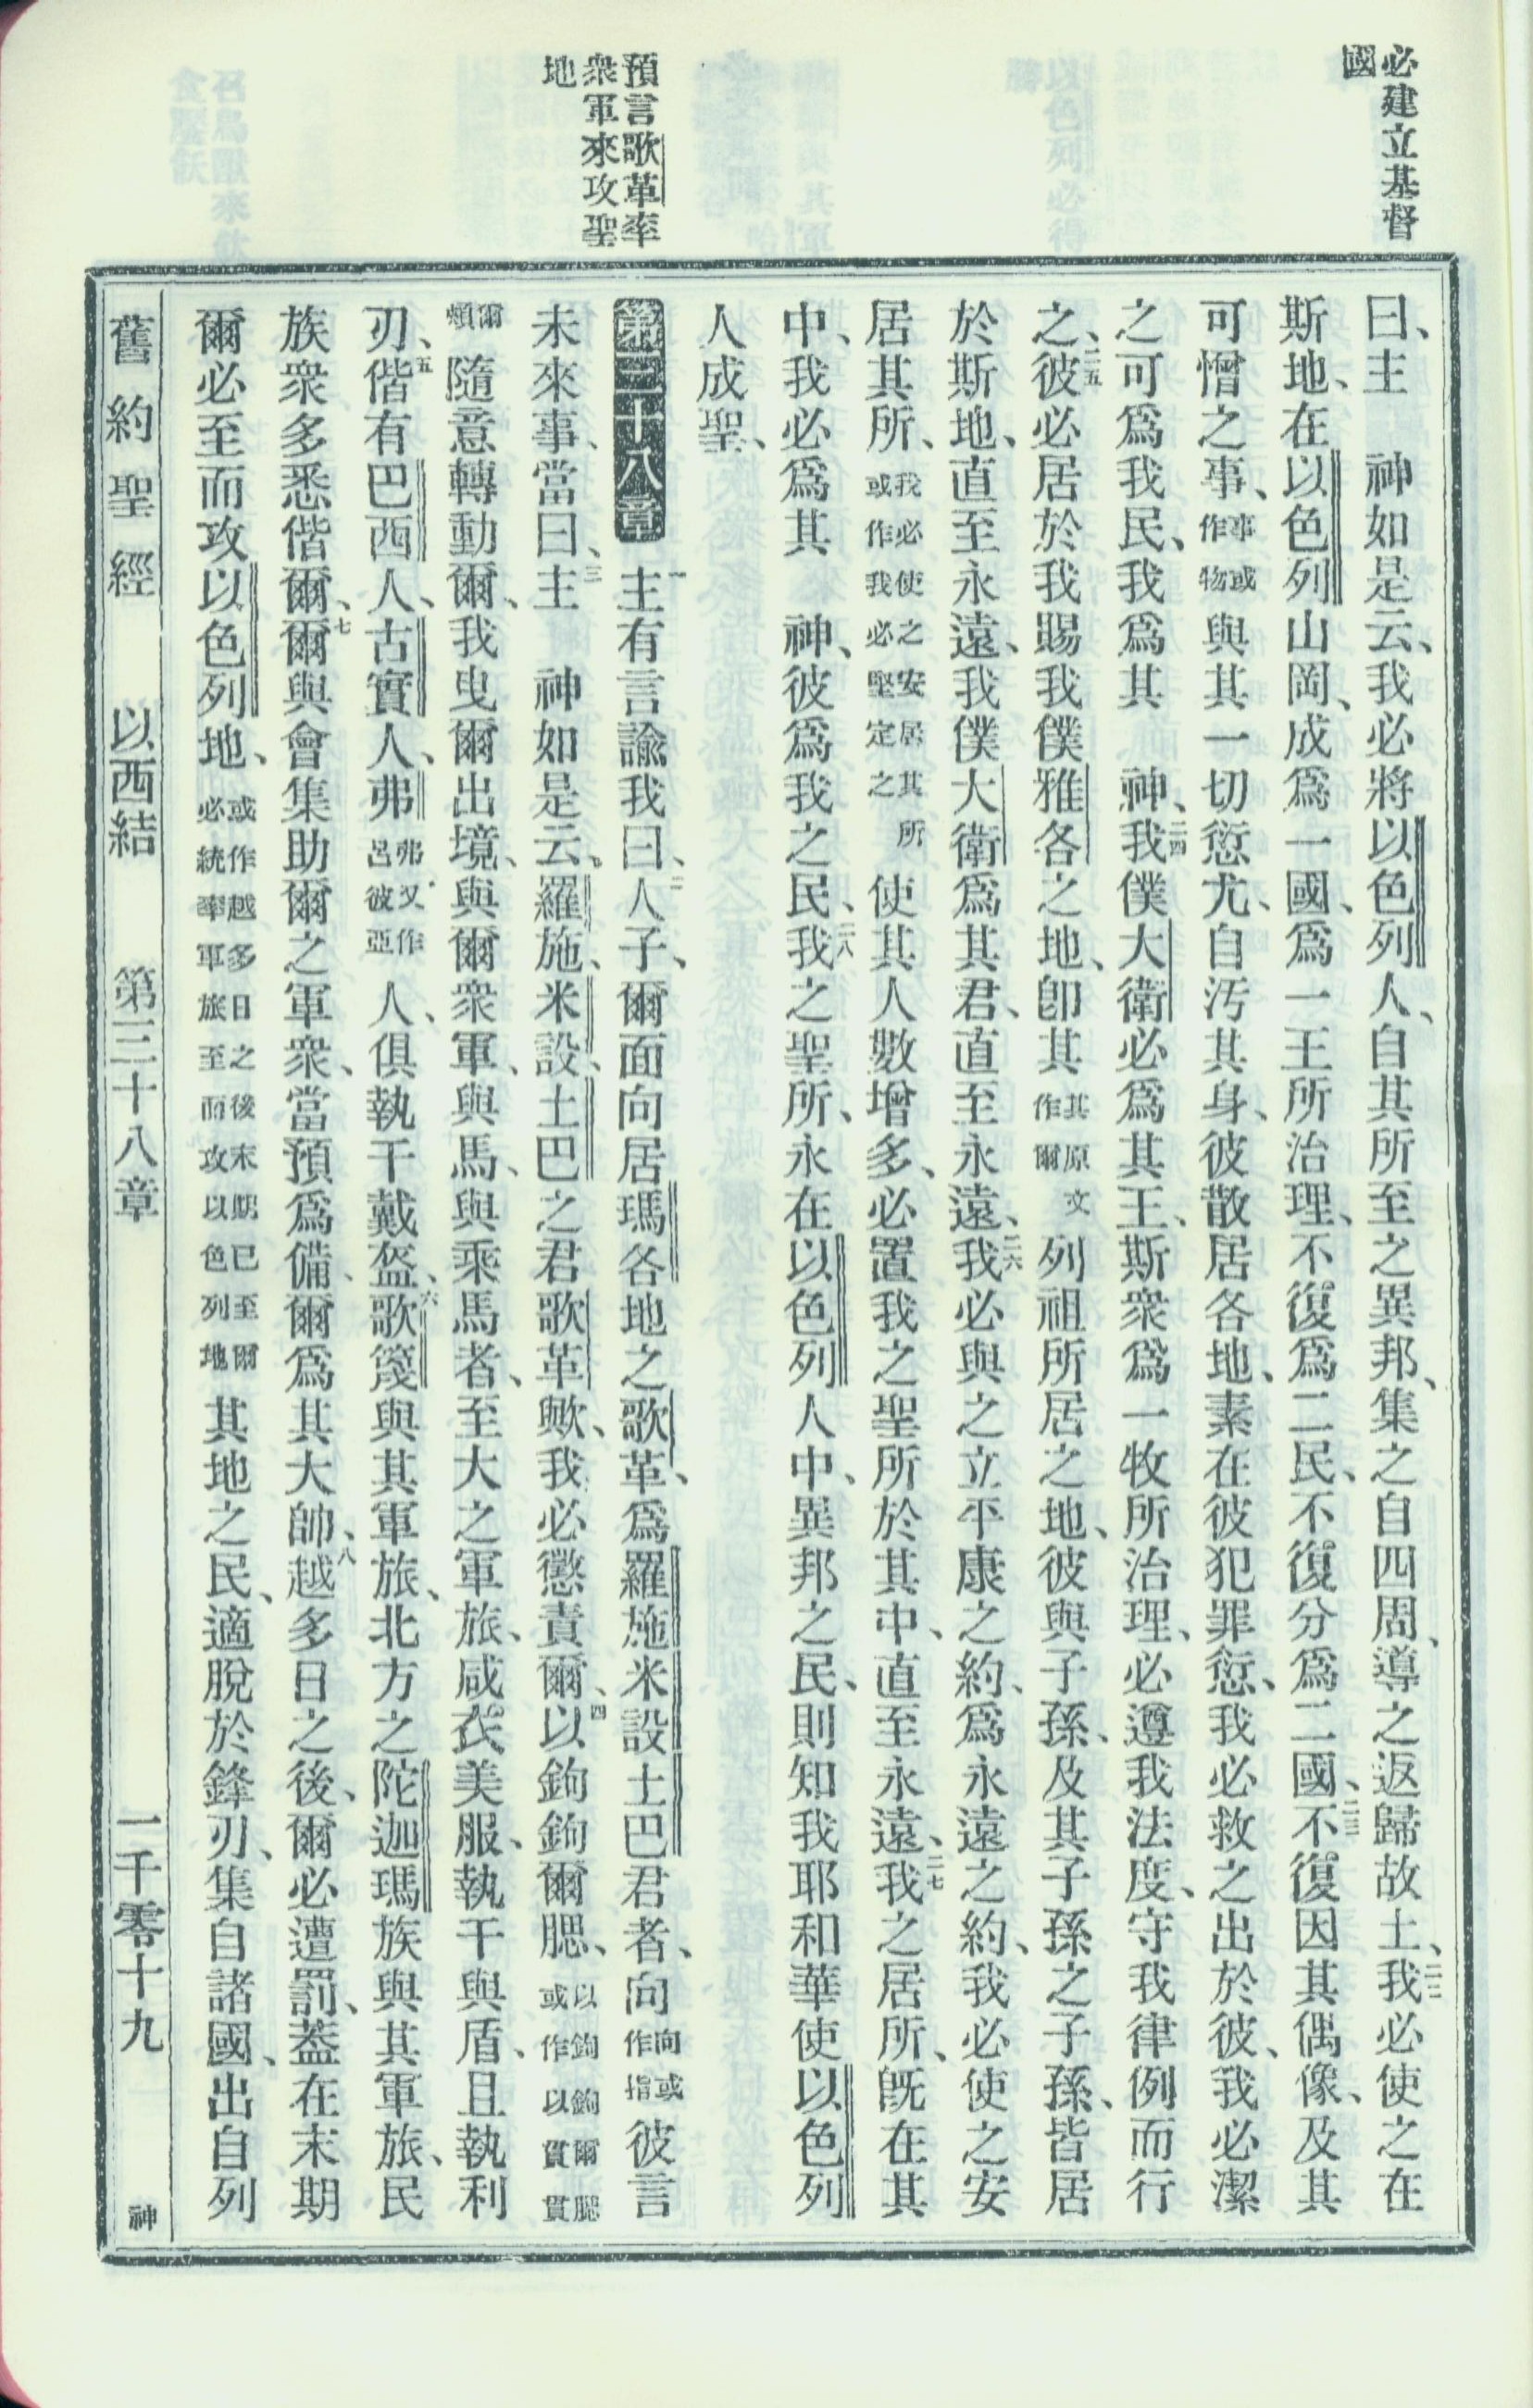 必建立基督
國
預言歌革率
衆軍來攻聖
地
曰、主　神如是云、我必將以色列人、自其所至之異邦、集之自四周、導之返歸故土、二二我必使之在
斯地、在以色列山岡、成爲一國、爲一王所治理、不復爲二民、不復分爲二國、二三不復因其偶像、及其
可憎之事、事或作物與其一切愆尤、自汚其身、彼散居各地、素在彼犯罪愆、我必救之出於彼、我必潔
之可爲我民、我爲其　神、二四我僕大衛必爲其王、斯衆爲一牧所治理、必遵我法度、守我律例而行
之、二五彼必居於我賜我僕雅各之地、卽其其原文作爾列祖所居之地、彼與子孫、及其子孫之子孫、皆居
於斯地、直至永遠、我僕大衛爲其君、直至永遠、二六我必與之立平康之約、爲永遠之約、我必使之安
居其所、我必使之安居其所或作我必堅定之使其人數增多、必置我之聖所於其中、直至永遠、二七我之居所、旣在其
中、我必爲其　神、彼爲我之民、二八我之聖所、永在以色列人中、異邦之民、則知我耶和華使以色列
人成聖、
第三十八章　一主有言諭我曰、二人子、爾面向居瑪各地之歌革、爲羅施米設土巴君者、向向或作指彼言
未來事、當曰、三主　神如是云、羅施、米設、土巴之君歌革歟、我必懲責爾、四以鉤鉤爾腮、以鉤鉤爾腮或作以貫貫
爾頰隨意轉動爾、我曳爾出境、與爾衆軍、與馬、與乘馬者、至大之軍旅、咸衣美服、執干與盾、且執利
刃、五偕有巴西人、古實人、弗弗又作呂彼亞人、俱執干戴盔、六歌篾與其軍旅、北方之陀迦瑪族與其軍旅、民
族衆多悉偕爾、七爾與會集助爾之軍衆、當預爲備、爾爲其大帥、八越多日之後、爾必遭罰、蓋在末期
爾必至而攻以色列地、或作越多日之後末期已至爾必統率軍旅至而攻以色列地其地之民、適脫於鋒刃、集自諸國、出自列
舊約聖經　以西結　第三十八章　一千零十九　神